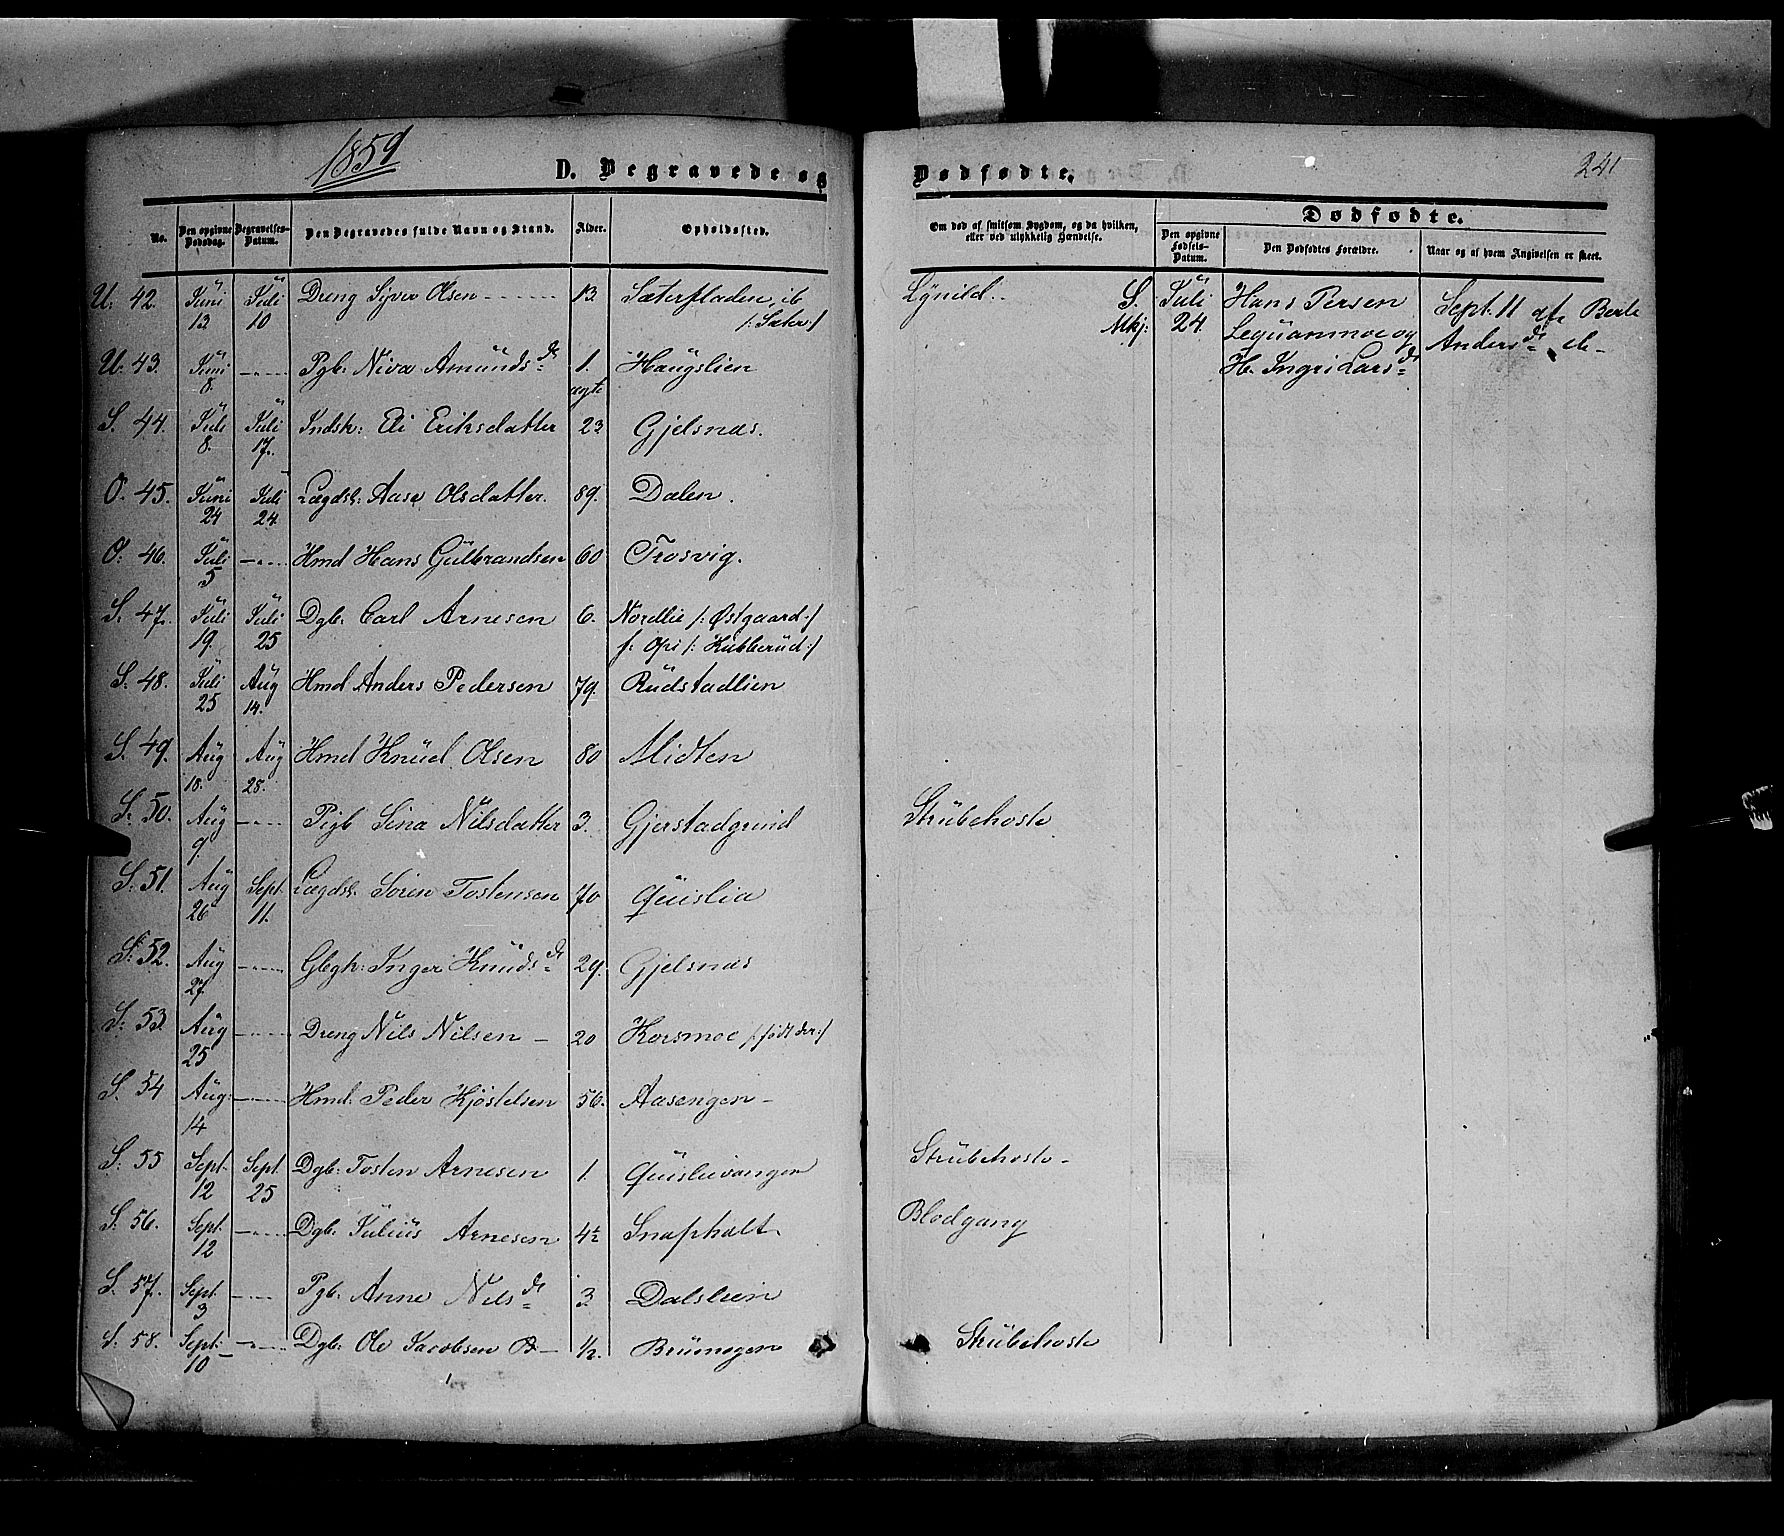 1859
D. Begravede og
Dødfødte.
241
No.
Den opgivne Dødsdag.
Begravelses-Datum.
Den Begravedes fulde Navn og Stand.
Alder.
Opholdssted.
Om død af smitsom Sygdom, og da hvilken, eller ved ulykkelig Hændelse.
Dødfødte.
Den opgivne Fødsels-Datum.
Den Dødfødtes Forældre.
Naar og af hvem Angivelsen er skeet.
U. 42. Juni 13 Juli 10 Dreng Syver Olsen 13. Sæterfladen
/: Sæter :/
Lynild..
S. Mkj: Juli 24. Hans Persen
Sept. 11 af Berte
Anders d:
H. Ingri Lars d:
U. 43. Juni 8. -„- Pgb. Niva Amunds d: 1. ægte Haugslien
S. 44. Juli 8. Juli 17. Indsk: Eli Eriksdatter 23 Gjelsnæs.
O. 45. Juni 24 Juli 24. Lægdsl: Aase Olsdatter. 89. Dalen.
O. 46. Juli 5 -„- Hmd Hans Gulbrandsen 60 Trosvig.
S. 47. Juli 19. Juli 25 Dgb. Carl Arnesen 6. Nordlie /: Østgaard :/
f: Opi /: Kubberud :/
S. 48. Juli 25 Aug 14. Hmd Anders Pedersen 79. Rudstadlien
S. 49. Aug 18. Aug 28. Hmd Knud Olsen 80 Midten
S. 50. Aug 9. -„- Pigb Sina Nilsdatter 3. Gjerstadgrind Strubehoste
S. 51. Aug 26 Sept. 11. Lægdsl. Søren Tostensen 70 Quislia
S. 52. Aug 27. -„- Inger Knuds d: 29. Gjelsnæs
S. 53. Aug 25 -„- Dreng Nils Nilsen - 20 Korsmoe /: født der :/
S. 54 Aug: 14 -„- Hmd: Peder Kjøstelsen 56. Aasengen -
S. 55 Sept. 12 Sept. 25 Dgb. Tosten Arnesen 1. Quislivangen Strubehoste -
S. 56. Sept. 12 -„- Dgb. Julius Arnesen 4½ Snaphalt. Blodgang
S. 57. Sept. 3 -„- Pgb. Anne Nils d: 3. Dalslien
S. 58. Sept: 10 -„- Dgb. Ole Jacobsen ½. Brumogen Strubehoste